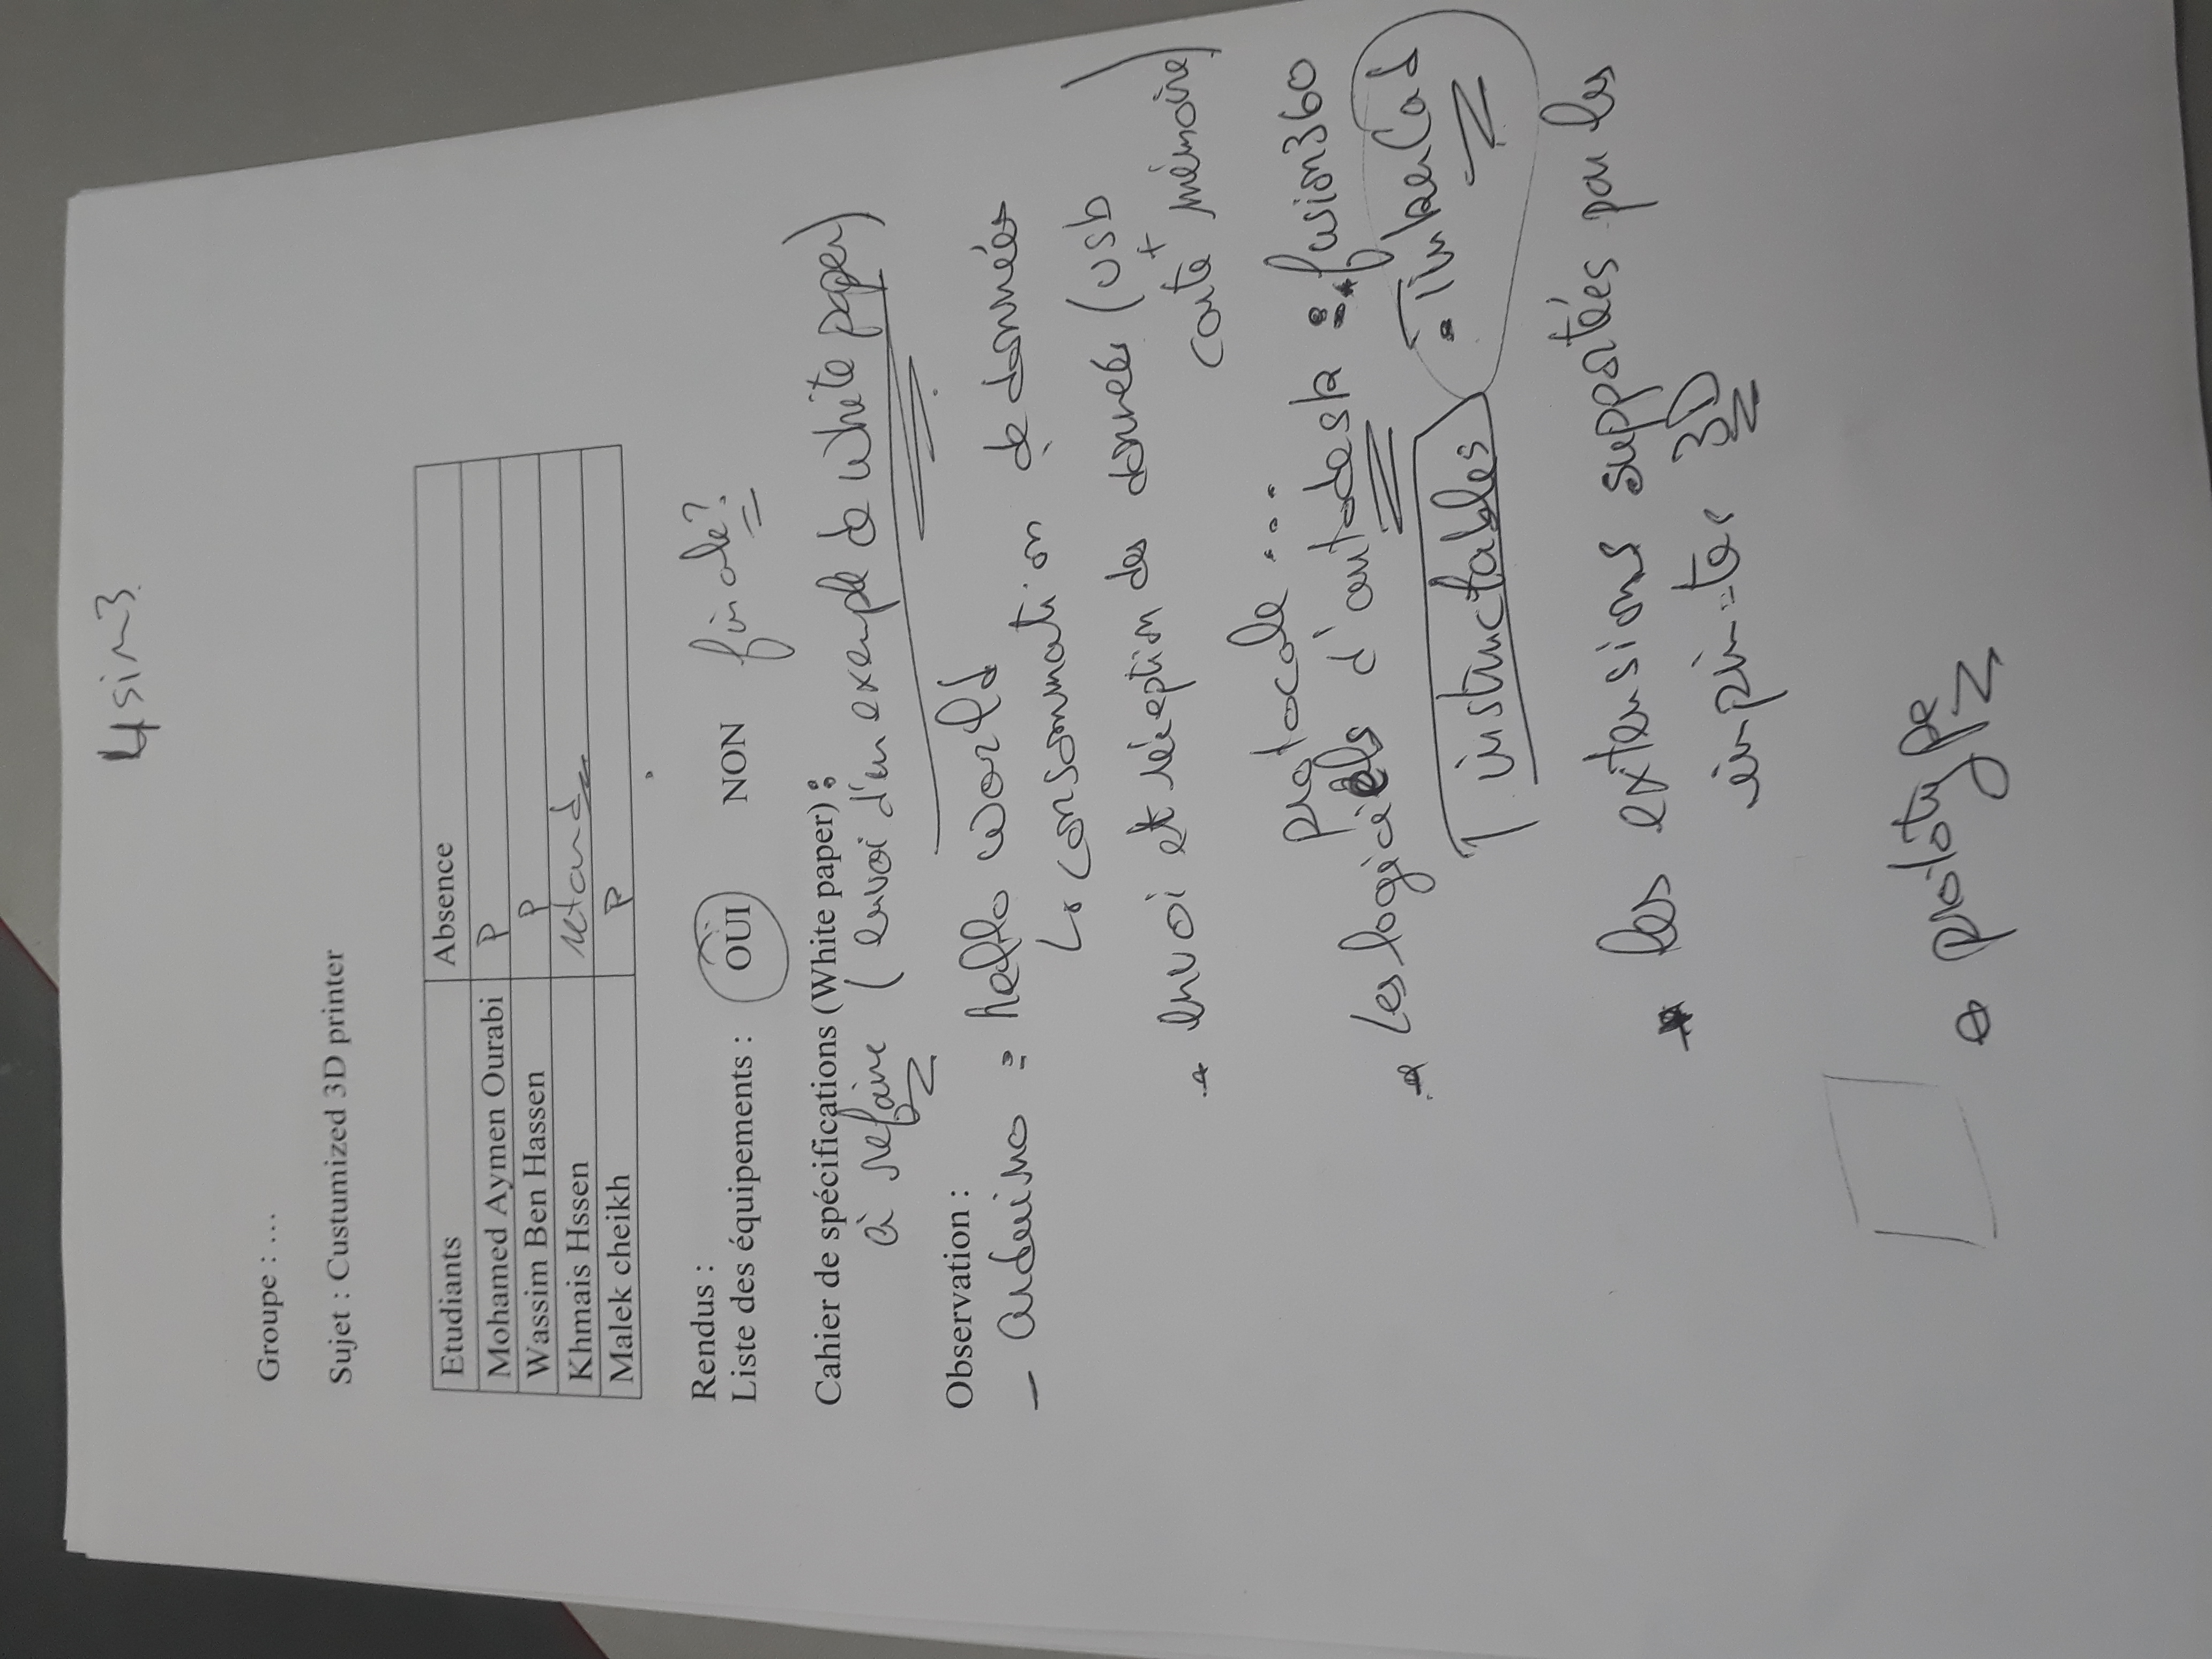 4sim3
Groupe : ...
Sujet : Custumized 3D printer
Etudiants Absence
Mohamed Aymen Ourabi P
Wassim Ben Hassen P
Khmais Hssen retard
Malek cheikh P
Rendus :
Liste des équipements : OUI NON finale?
Cahier de spécifications (White paper) :
à refaire (envoi d'un exemple de white paper)
Observation :
- arduino : hello world
↳ consommation de données
→ envoi et réception des données (usb
+
carte mémoire)
protocole ...
→ les logiciels d'autodesk : • fusion360
instructables • TinkerCad
→ les extensions supportées par les
3D
→ prototype